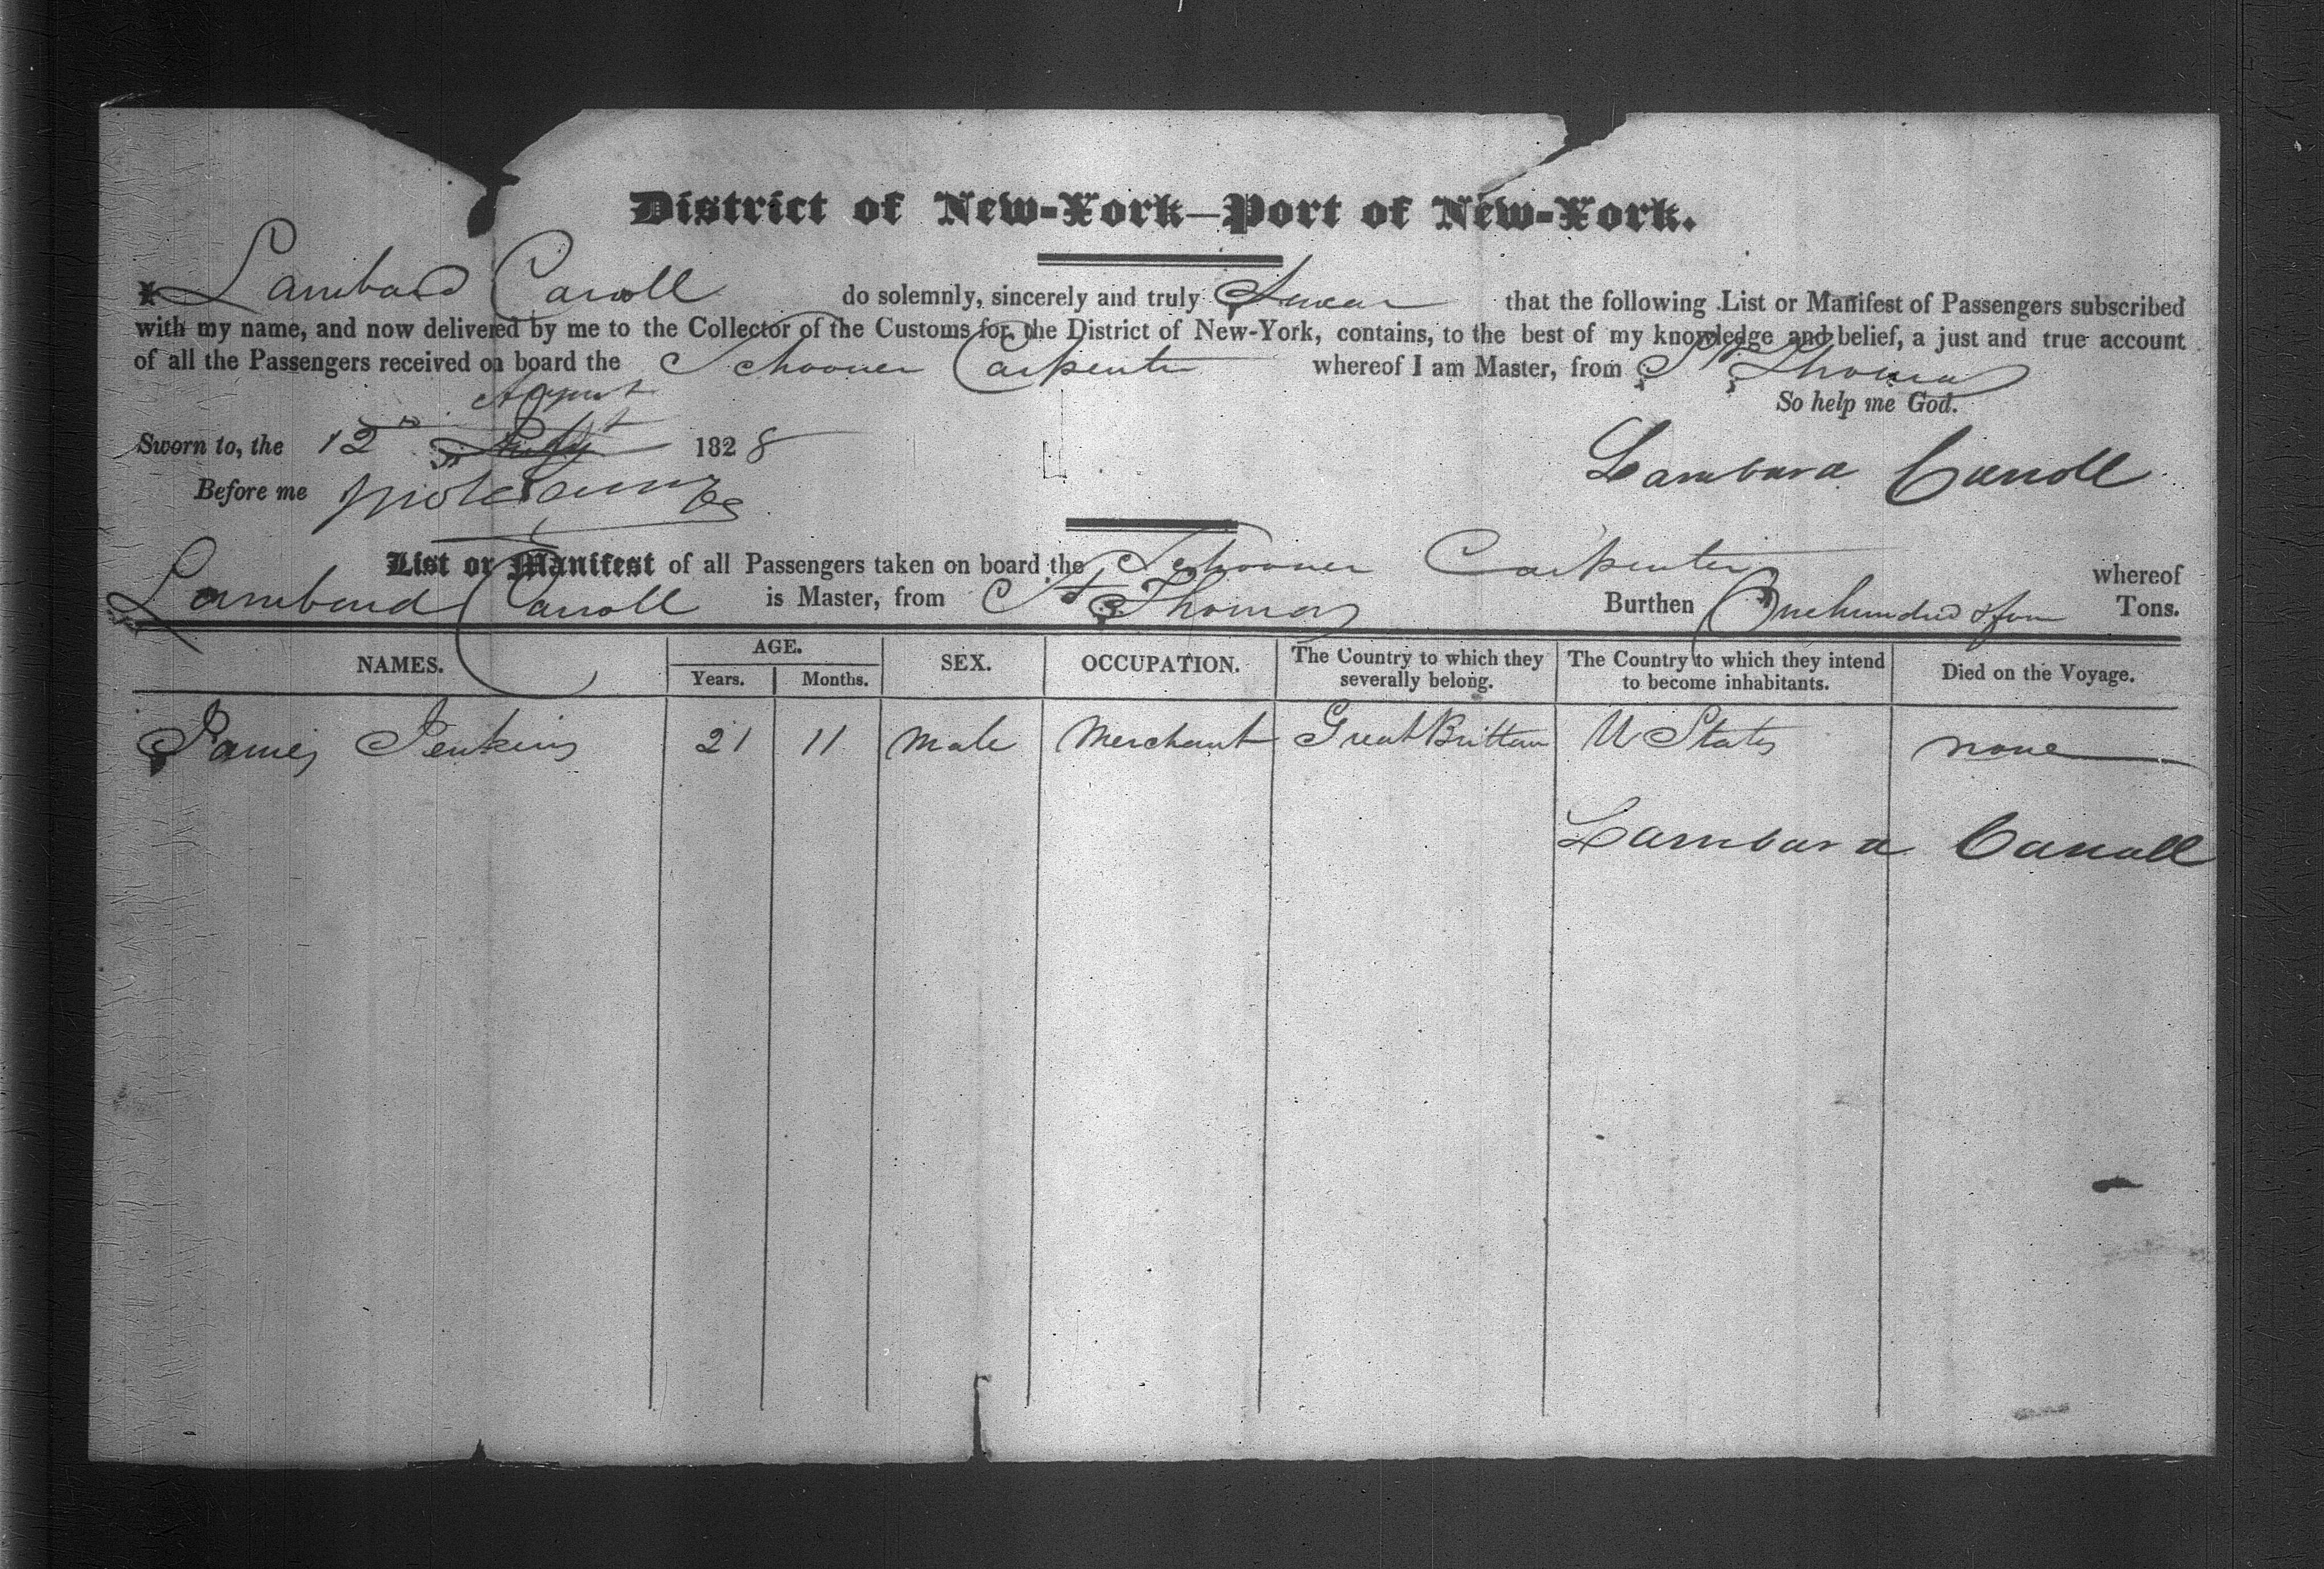 District of New-York—Port of New-York.
I Lambard Caroll do solemnly, sincerely and truly Swear that the following List or Manifest of Passengers subscribed
with my name, and now delivered by me to the Collector of the Customs for the District of New-York, contains, to the best of my knowledge and belief, a just and true account
of all the Passengers received on board the Schooner Carpenter whereof I am Master, from St Thomas
So help me God.
August
Sworn to, the 12th July 1828
Lambard Carroll
Before me
List or Manifest of all Passengers taken on board the Schooner Carpenter whereof
Lambard Carroll is Master, from St Thomas Burthen One hundred & four Tons.
NAMES. AGE. Years. Months. SEX. OCCUPATION. The Country to which they severally belong. The Country to which they intend to become inhabitants. Died on the Voyage.
James Jenkins 21 11 Male Merchant Great Brittan U States none
Lambard Carroll